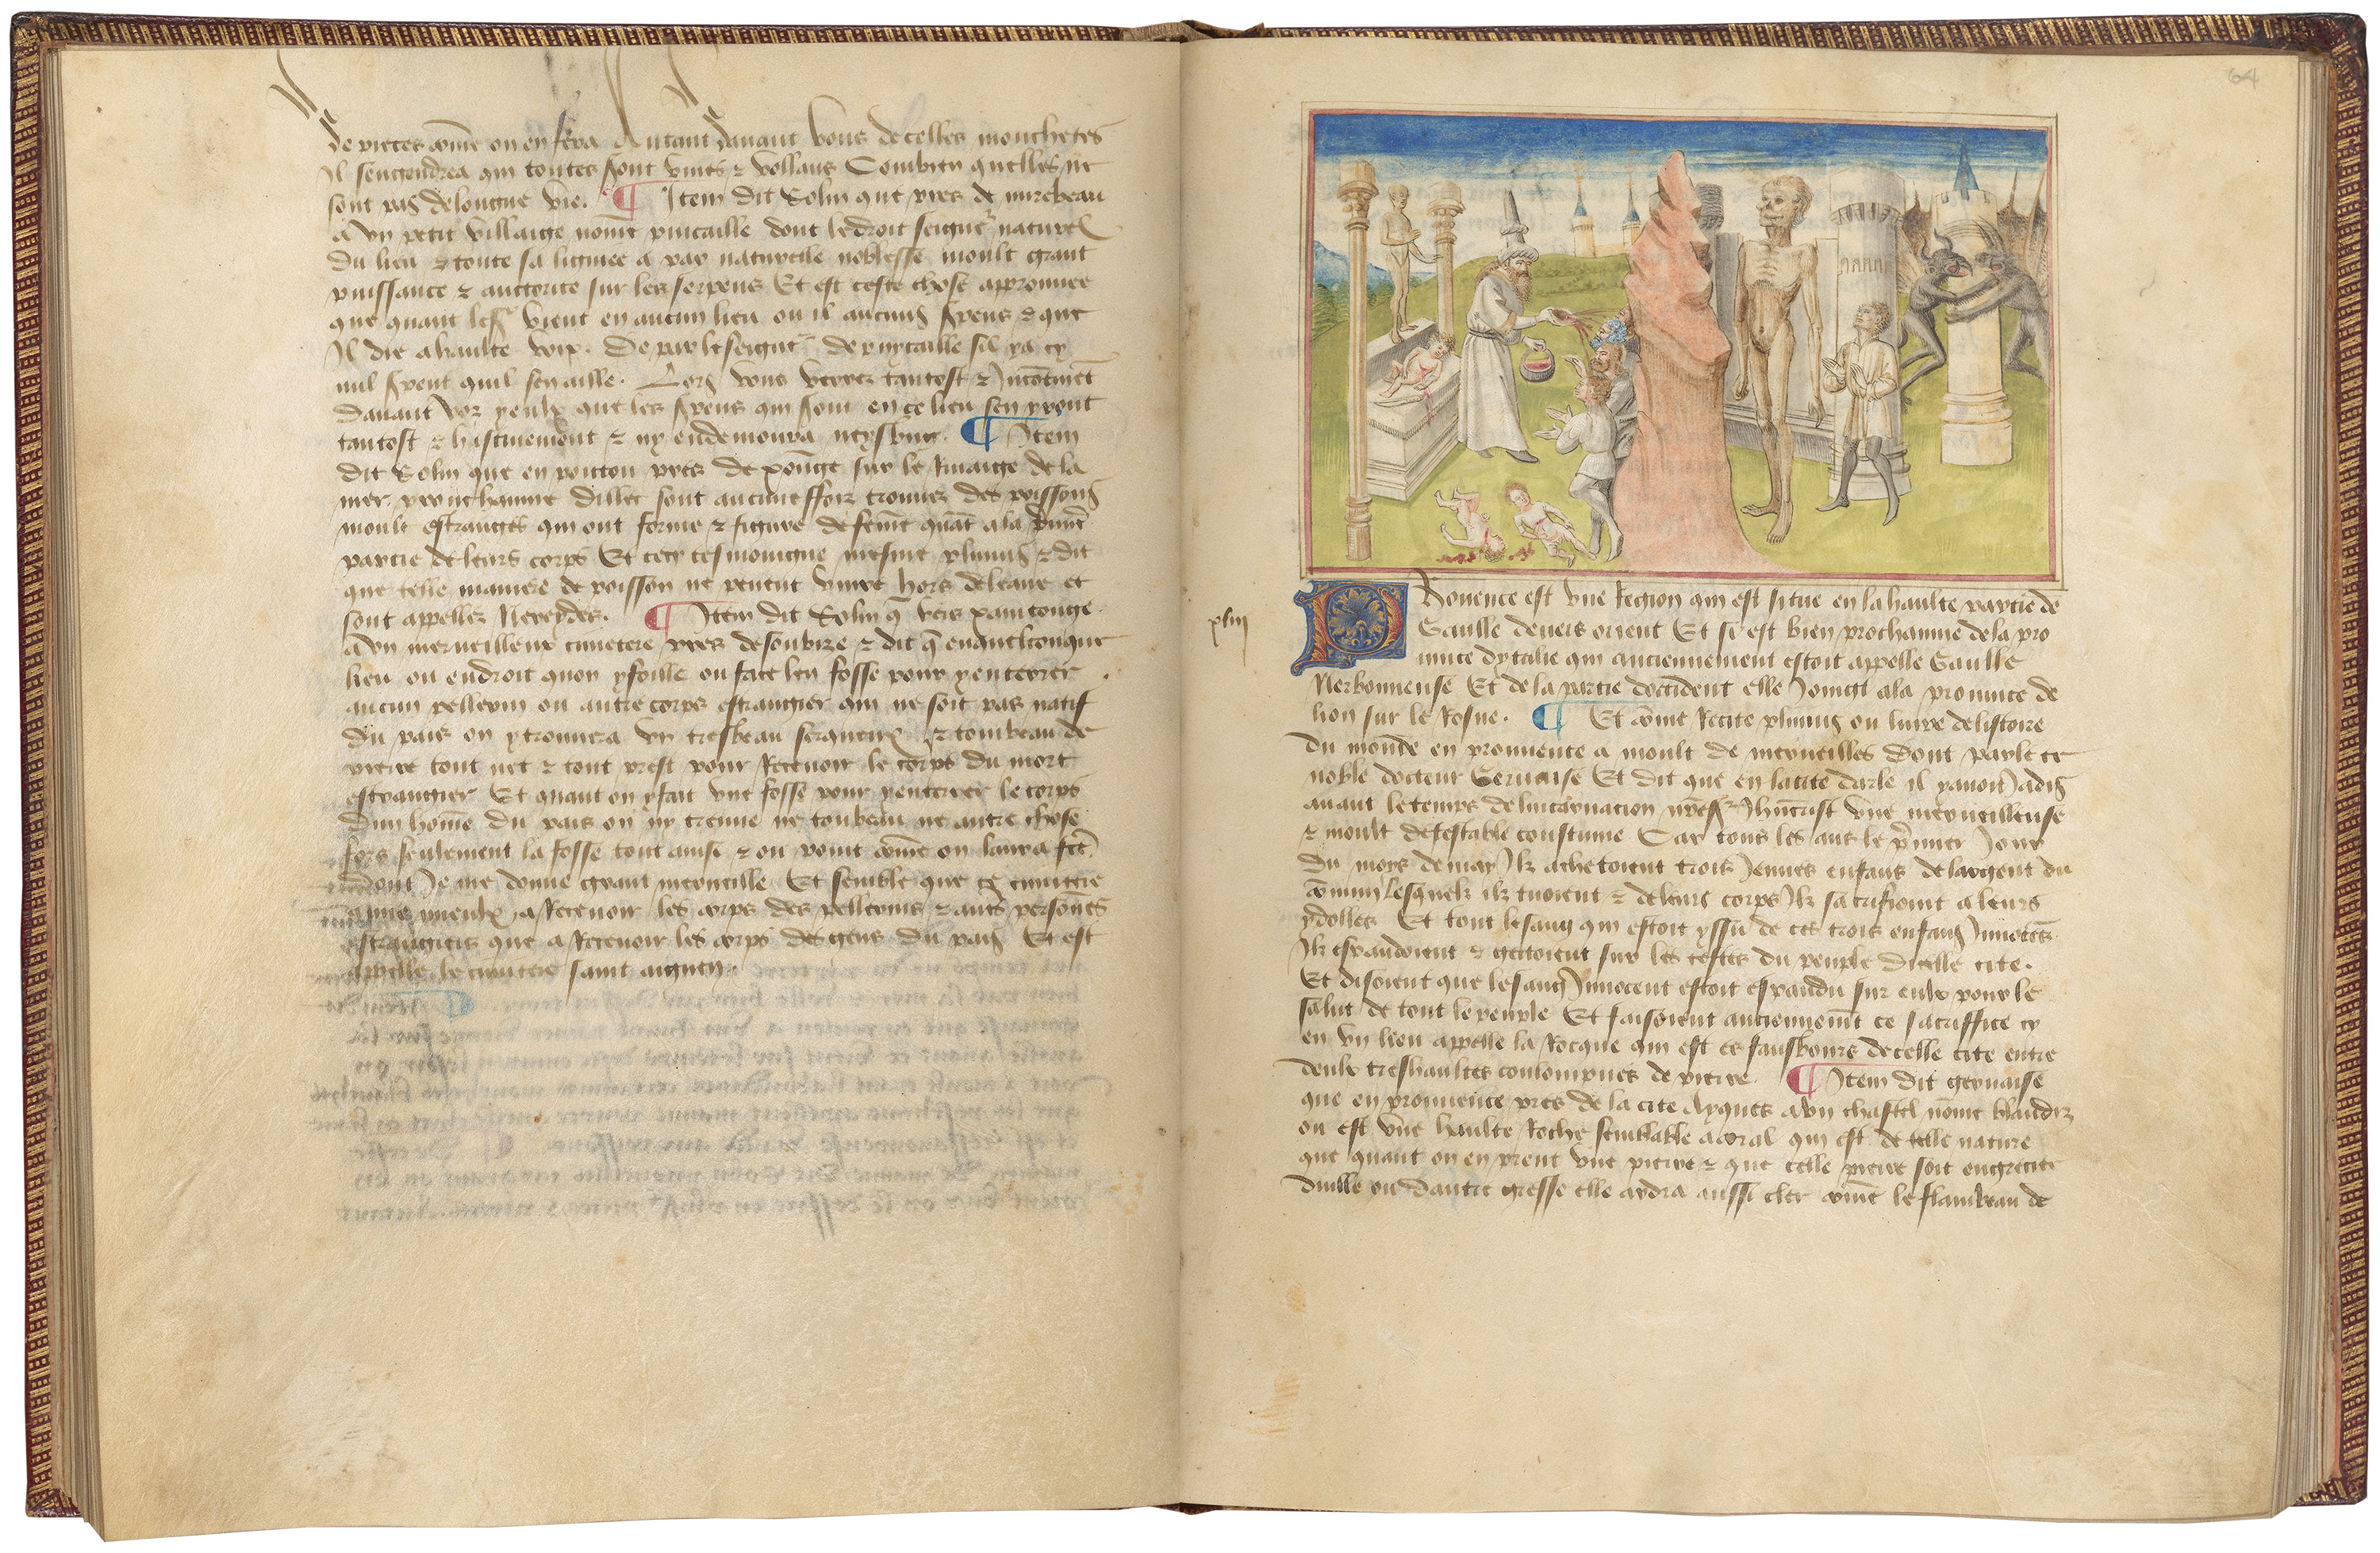 de pierres cōme on en fera Autant davant vous de celles mouchetes
Il sengendrea qui toutes sont vives ⁊ vollans Combien quelles ne
sont pas de longue vie. ¶ Item dit Solin que pres de mirebeau
a vn petit villaige nōme puicaille dont le droit seigneʳ naturel
du lieu ⁊ toute sa lignee a par naturelle noblesse moult grant
puissance ⁊ auctorite sur les serpens Et est ceste chose approuvee
que quant le vient en aucun lieu ou il aucuns spens ⁊ que
Il die a haulte voix. De par le seigneʳ de puytaille sil ya cy
nul spent quil sen aille. Lors vous verrez tantost ⁊ Incōtinēt
davant voz yeulx que les spens qui sont en ce lieu sen yront
tantost ⁊ hastivement ⁊ ny endemoura ung. ¶ Item
dit Solin que en poictou pres de sur le Rivaige de la
mer prouchaine dillec sont aucuneffoiz trouvez des poissons
moult estranges qui ont forme ⁊ figure de feme quāt a la pmie
partie de leurs corps Et cecy tesmoingne mesme plinius ⁊ dit
que telle maniere de poisson ne peuent vivre hors de leaue et
sont appellez Nereydes. ¶ Item dit Solin q̄ vers xainctonge
a vn merveilleux cimetere pres de soubize ⁊ dit q̄ en quelconque
lieu ou endroit quon y foulle ou face len fosse pour y enterrer
aucun pellerin ou autre corps estrangier qui ne soit pas natif
du pais on y trouvera vn tresbeau serqueux ⁊ tombeau de
pierre tout net ⁊ tout prest pour Recevoir le corps du mort
estrangier Et quant on y fait vne fosse pour y enterrer le corps
dun hōme du pais on ny treuve ne tonbeau ne autre chose
fors seulement la fosse tout ainsi ⁊ ou point cōme on laura fce
dont Je me donne grant merveille Et semble que ce cimitere
ayme mieulx a Recevoir les corps des pellerins ⁊ auts persones
estrangiers que a Recevoir les corps des gens du pais Et est
appelle le cimitere saint
64
xliij
PRovence est vne Region qui est situe en la haulte partie de
Gaulle devers orient Et si est bien prochainne de la pro
vince dytalie qui anciennement estoit appelle Gaulle
Nerbonnense Et de la partie doccident elle Joingt a la province de
lion sur le Rosne. ¶ Et cōme Recite plinius ou livre de listoire
du monde en prouvence a moult de merveilles dont parle ce
noble docteur Gervaise Et dit que en la cite darle il y avoit Jadis
avant le temps de lincarnacion nreʳ Jhūcrist vne merveilleuse
⁊ moult detestable coustume Car tous les ans le pmier Jour
du moys de may Ilz achetoient trois Jeunes enfans de largent du
cōmun lesquelz ilz tuoient ⁊ de leurs corps Ilz sacrifioient a leurs
ydolles Et tout le sang qui estoit yssu de ces trois enfans Innocēs
Ilz espandoient ⁊ gectoient sur les testes du peuple dicelle cite.
Et disoient que le sang Innocent estoit espandu sur eulx pour le
salut de tout le peuple Et faisoient anciennemēt ce sacriffice cy
en vn lieu appelle la Rocque qui est es fausbourcs de celle cite entre
deulx treshaultes coulompnes de pierre. ¶ Item dit gervaise
que en prouvence pres de la cite Ayques a vn chastel nōme blandiz
ou est vne haulte Roche semblable a coral qui est de telle nature
que quant on en prent vne pierre ⁊ que celle pierre soit engrecee
duille ou dautre gresse elle ardra aussi cler cōme le flambeau de